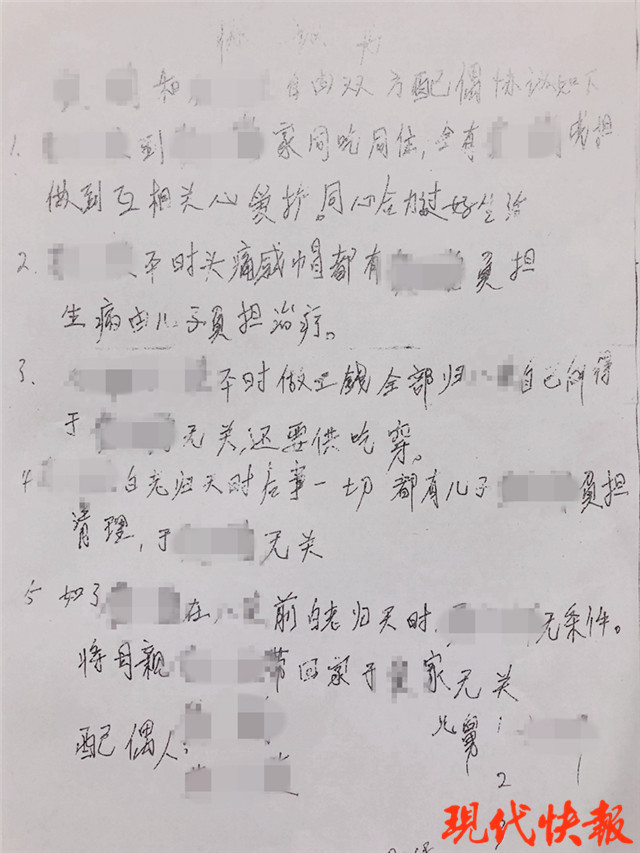 和 由双方配偶协议如下
1. 到 家同吃同住,全有 承担
做到互相关心爱护。同心合力过好生活
2. 平时头痛感帽都有 負担
生病由儿子負担治疗。
3. 平时做工錢全部归 自己所得
于 无关,还要供吃穿。
4 百老归天时后事一切都有儿子 負担
清理,于 无关
5 如了 在 前百老归天时, 无条件。
将母親 带回家于 家无关
配偶人: 兄舅 1
2
现代快報